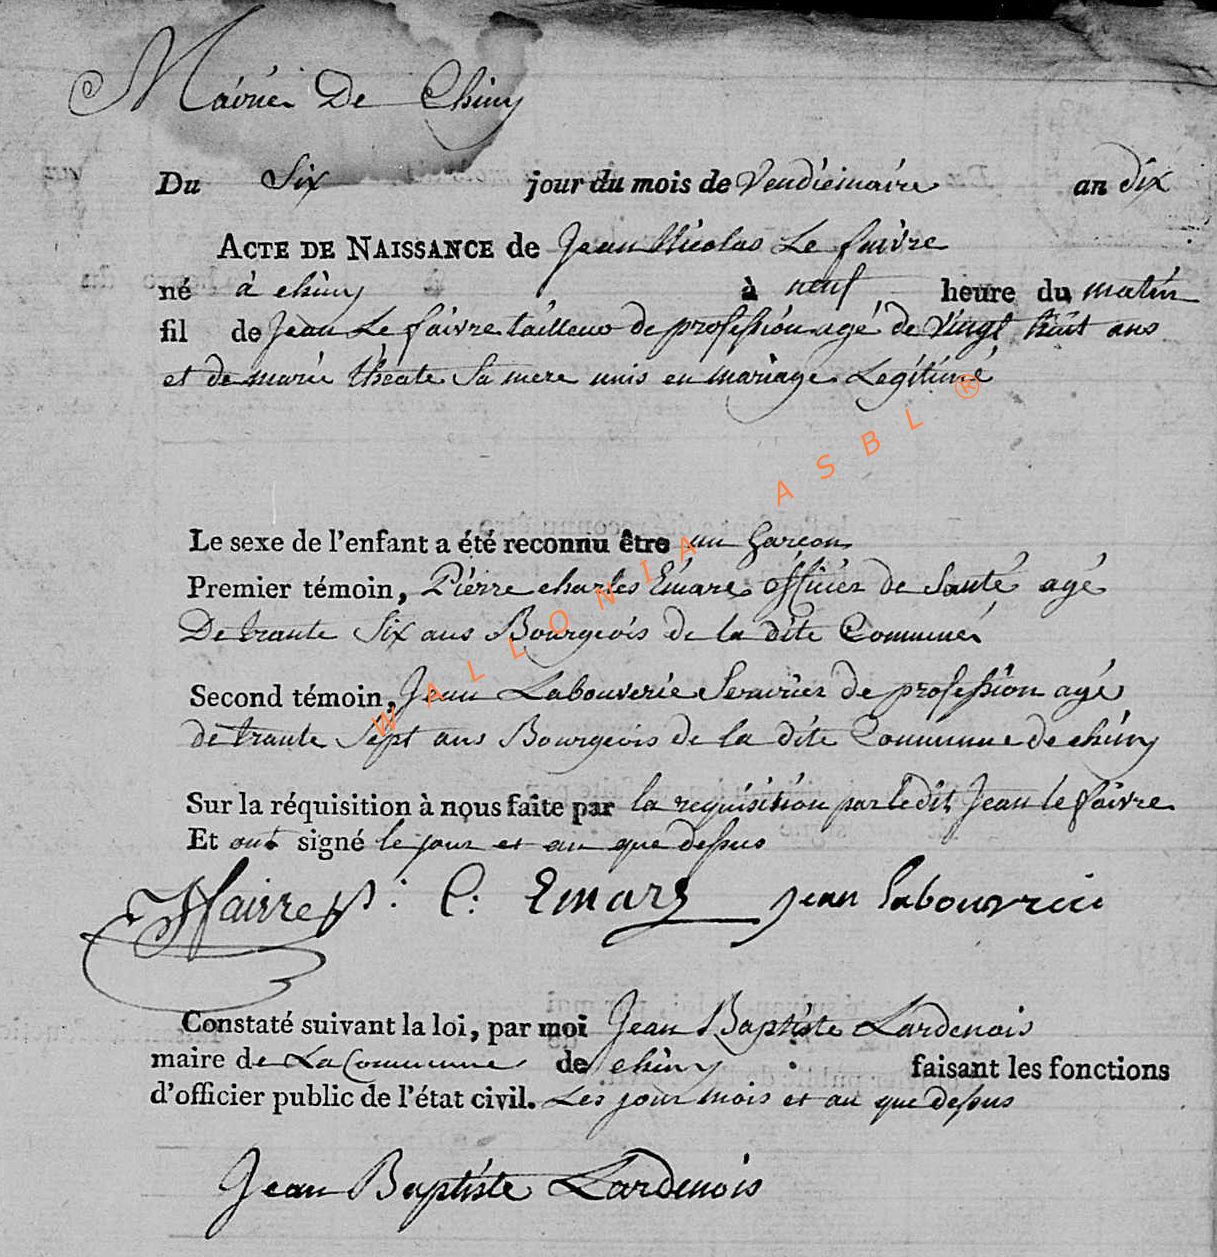 Mairie De Chiny
Du Six jour du mois de Vendiémaire an dix
ACTE DE NAISSANCE de Jean Nicolas Le faivre
né à chiny à neuf heure du matin
fil de Jean Le faivre tailleur de profession agé de vingt huit ans
et de marie théate Sa mere unis en mariage Légitime
Le sexe de l'enfant a été reconnu être un Garcon
Premier témoin, Piérre charles Emare officier de Santé agé
De trante Six ans Bourgeois de la dite Commune
Second témoin, Jean Labouverie Serurier de profession agé
de trante Sept ans Bourgeois de la dite Commune de chiny
Sur la réquisition à nous faite par la requisition par le dit Jean le faivre
Et ont signé le jour et an que dessus
faivre p: C: Emare jean labouvrie
Constaté suivant la loi, par moi Jean Baptiste Lardenois
maire de La Commune de chiny faisant les fonctions
d'officier public de l'état civil. Les jour mois et an que dessus
Jean Baptiste Lardenois
WALLONIA ASBL ®